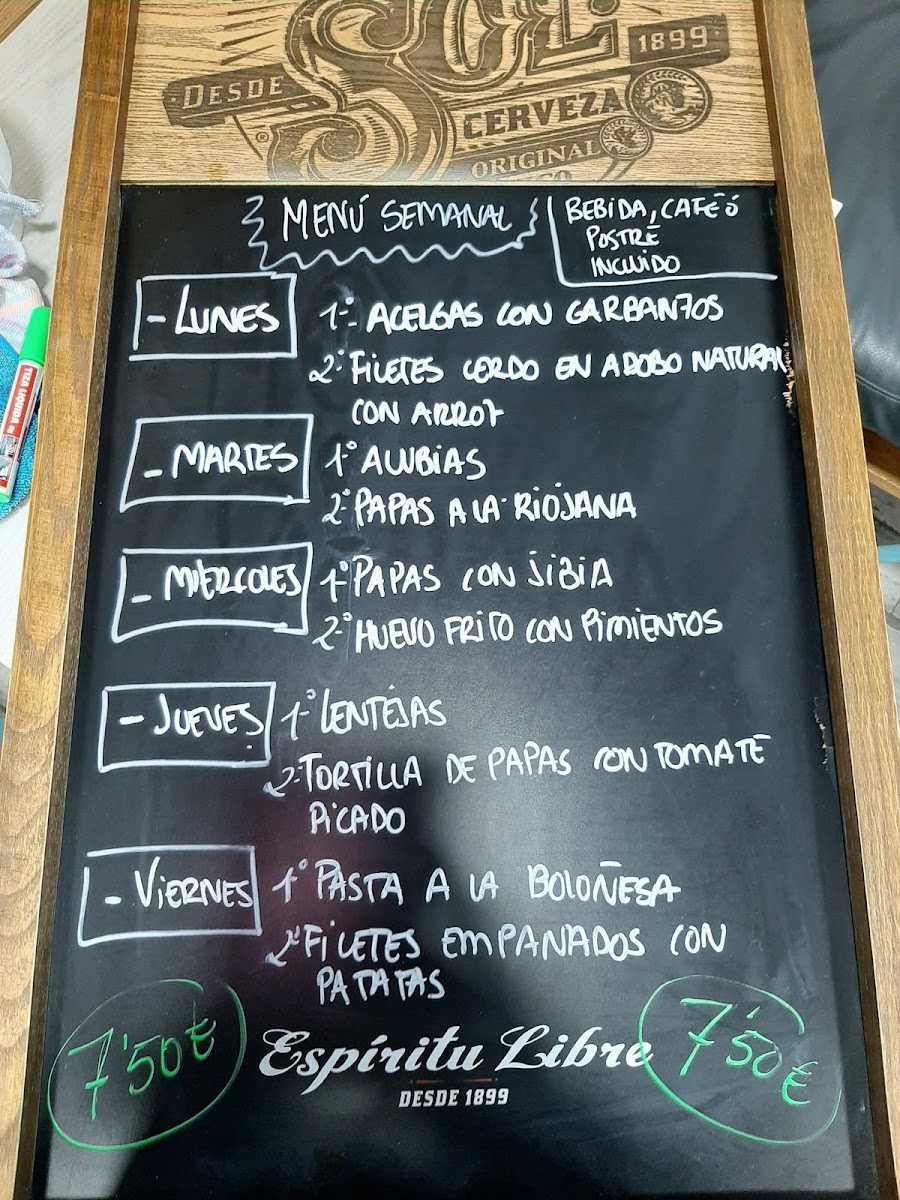 SOL
DESDE
1899
CERVEZA
ORIGINAL
MENÚ SEMANAL
BEBIDA, CAFÉ Ó
POSTRE
INCLUIDO
- LUNES
1º- ACELGAS CON GARBANZOS
2º FILETES CERDO EN ADOBO NATURAL
CON ARROZ
- MARTES
1º ALUBIAS
2º PAPAS A LA RIOJANA
- MIERCOLES
1º PAPAS CON JIBIA
2-º HUEVO FRITO CON PIMIENTOS
- JUEVES
1-º LENTEJAS
2- TORTILLA DE PAPAS CON TOMATE
PICADO
- VIERNES
1º PASTA A LA BOLOÑESA
2º FILETES EMPANADOS CON
PATATAS
7'50€
7'50€
Espíritu Libre
DESDE 1899
TIZA LÍQUIDA